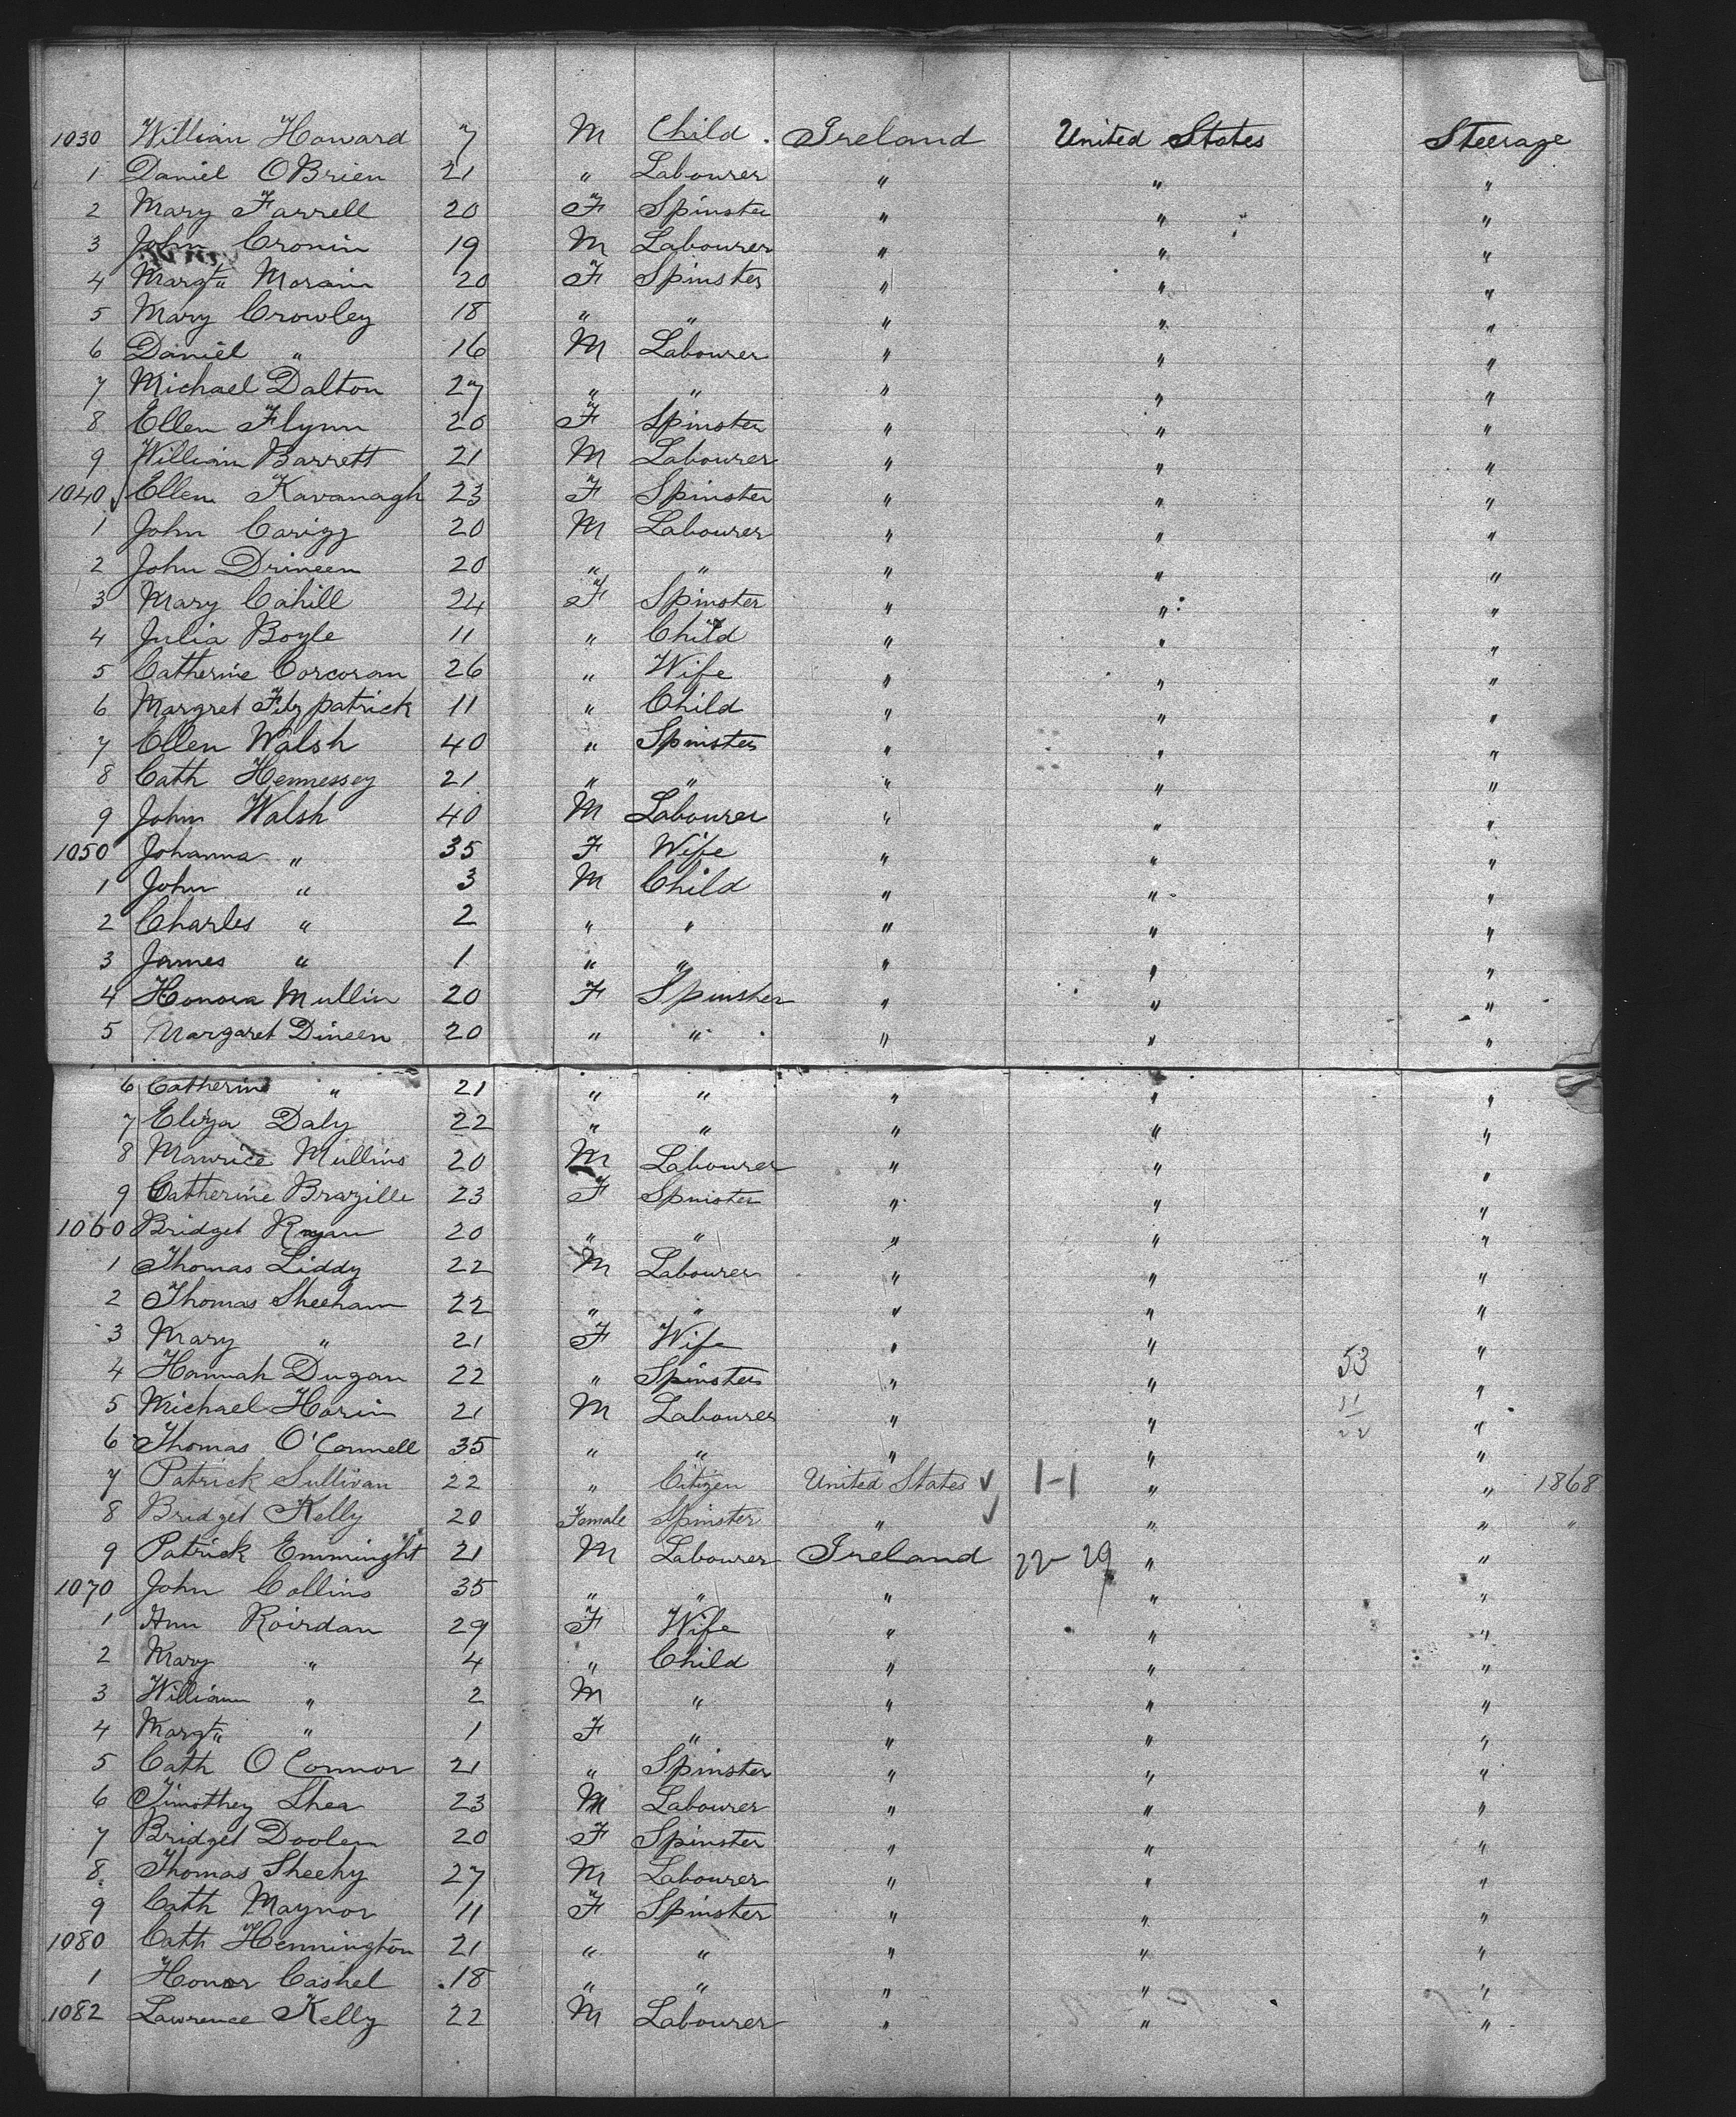 1030 William Howard 7 M Child Ireland United States Steerage
1 Daniel OBrien 21 " Labourer " " "
2 Mary Farrell 20 F Spinster " " "
3 John Cronin 19 M Labourer " " "
4 Margt Morain 20 F Spinster " " "
5 Mary Crowley 18 " " " " "
6 Daniel " 16 M Labourer " " "
7 Michael Dalton 27 " " " " "
8 Ellen Flynn 20 F Spinster " " "
9 William Barrett 21 M Labourer " " "
1040 Ellen Kavanagh 23 F Spinster " " "
1 John 20 M Labourer " " "
2 John Drineen 20 " " " " "
3 Mary Cahill 24 F Spinster " " "
4 Julia Boyle 11 " Child " " "
5 Catherine Corcoran 26 " Wife " " "
6 Margret Fitzpatrick 11 " Child " " "
7 Ellen Walsh 40 " Spinster " " "
8 Cath Hennessey 21 " " " " "
9 John Walsh 40 M Labourer " " "
1050 Johanna " 35 F Wife " " "
1 John " 3 M Child " " "
2 Charles " 2 " " " " "
3 James " 1 " " " " "
4 Honora Mullin 20 F Spinster " " "
5 Margaret Dineen 20 " " " " "
6 Catherine " 21 " " " " "
7 Eliza Daly 22 " " " " "
8 Maurice Mullins 20 M Labourer " " "
9 Catherine Brazille 23 F Spinster " " "
1060 Bridget Ryan 20 " " " " "
1 Thomas Liddy 22 M Labourer " " "
2 Thomas Sheehan 22 " " " " "
3 Mary " 21 F Wife " " "
4 Hannah Dugan 22 " Spinster " " 53 "
5 Michael Horin 21 M Labourer " " "
6 Thomas O'Connell 35 " " " " "
7 Patrick Sullivan 22 " Citizen United States 1-1 " " 1868
8 Bridget Kelly 20 Female Spinster " " " "
9 Patrick Emminght 21 M Labourer Ireland 22-29 " "
1070 John Collins 35 " " " " "
1 Ann Roirdan 29 F Wife " " "
2 Mary " 4 " Child " " "
3 William " 2 M " " " "
4 Margt " 1 F " " " "
5 Cath O Connor 21 " Spinster " " "
6 Timothey Shea 23 M Labourer " " "
7 Bridget Doolen 20 F Spinster " " "
8 Thomas Sheehy 27 M Labourer " " "
9 Cath Maynor 11 F Spinster " " "
1080 Cath Hennington 21 " " " " "
1 Honor Cashel 18 " " " " "
1082 Lawrence Kelly 22 M Labourer " " "